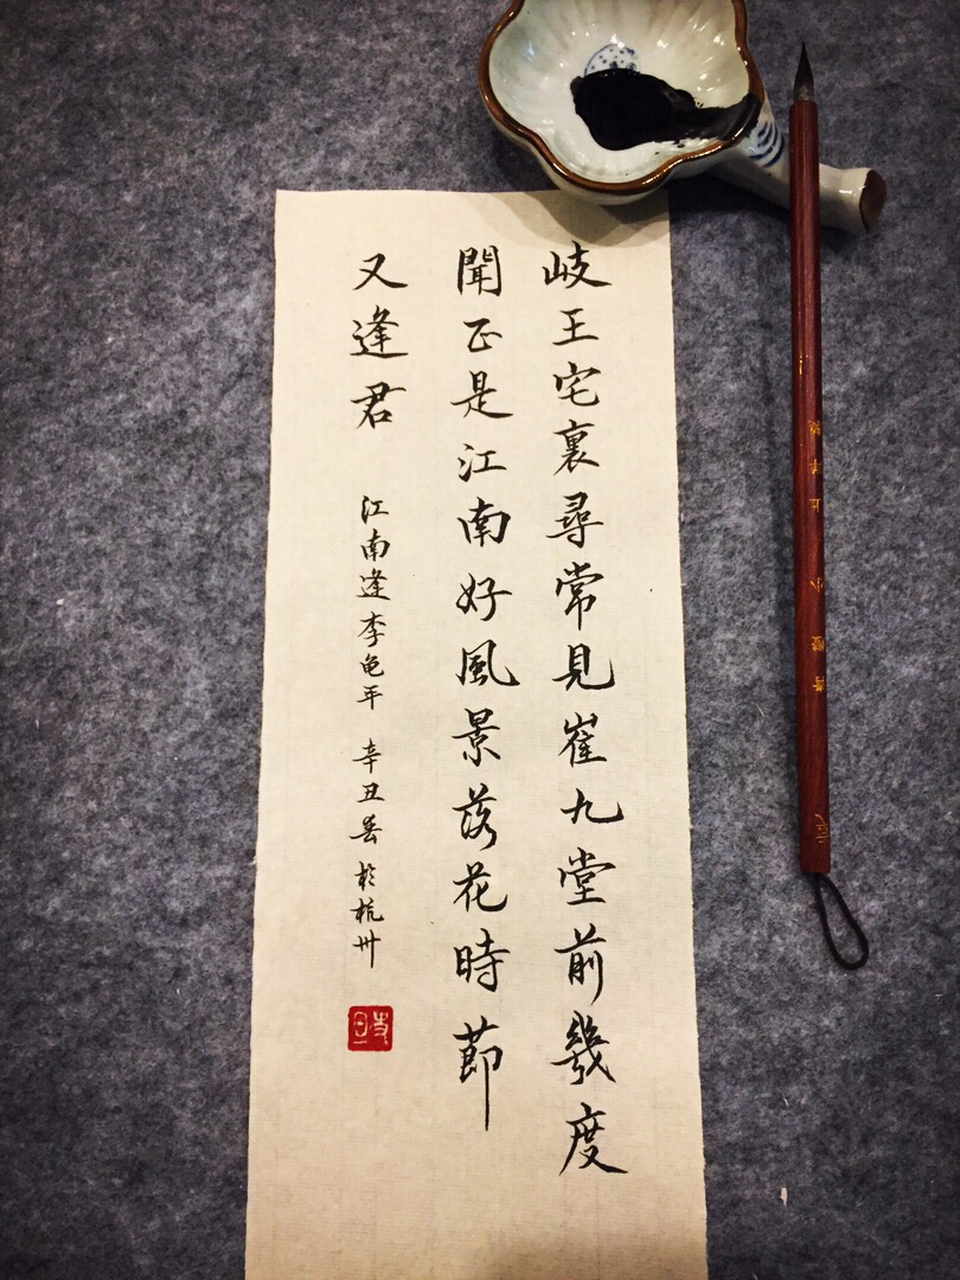 岐王宅裏尋常見崔九堂前幾度
聞正是江南好風景落花時節
又逢君
江南逢李龟年 辛丑春於杭州